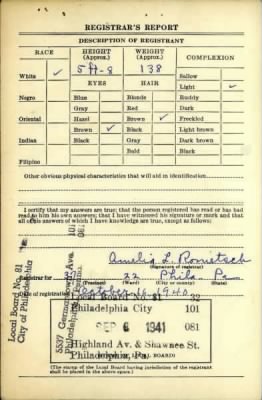 REGISTRAR'S REPORT
DESCRIPTION OF REGISTRANT
RACE HEIGHT (Approx.) WEIGHT (Approx.) COMPLEXION
5 ft-8 138
White ✓ Sallow
EYES HAIR Light ✓
Negro Blue Blonde Ruddy
Gray Red Dark
Oriental Hazel Brown ✓ Freckled
Brown ✓ Black Light brown
Indian Black Gray Dark brown
Bald Black
Filipino
Other obvious physical characteristics that will aid in identification
I certify that my answers are true; that the person registered has read or has had
read to him his own answers; that I have witnessed his signature or mark and that
all of his answers of which I have knowledge are true, except as follows:
Local Board No. 81
City of Philadelphia
5337 Germantown Ave.
101
081
(Signature of registrar)
Registrar for 22 Phila. Pa
(Precinct) (Ward) (City or county) (State)
Date of registration October 16 1940
Local Board No. 81 32
Philadelphia City 101
SEP 6 1941 081
Highland Av. & Shawnee St.
Philadelphia, Pa.
(The stamp of the Local Board having jurisdiction of the registrant
shall be placed in the above space.)